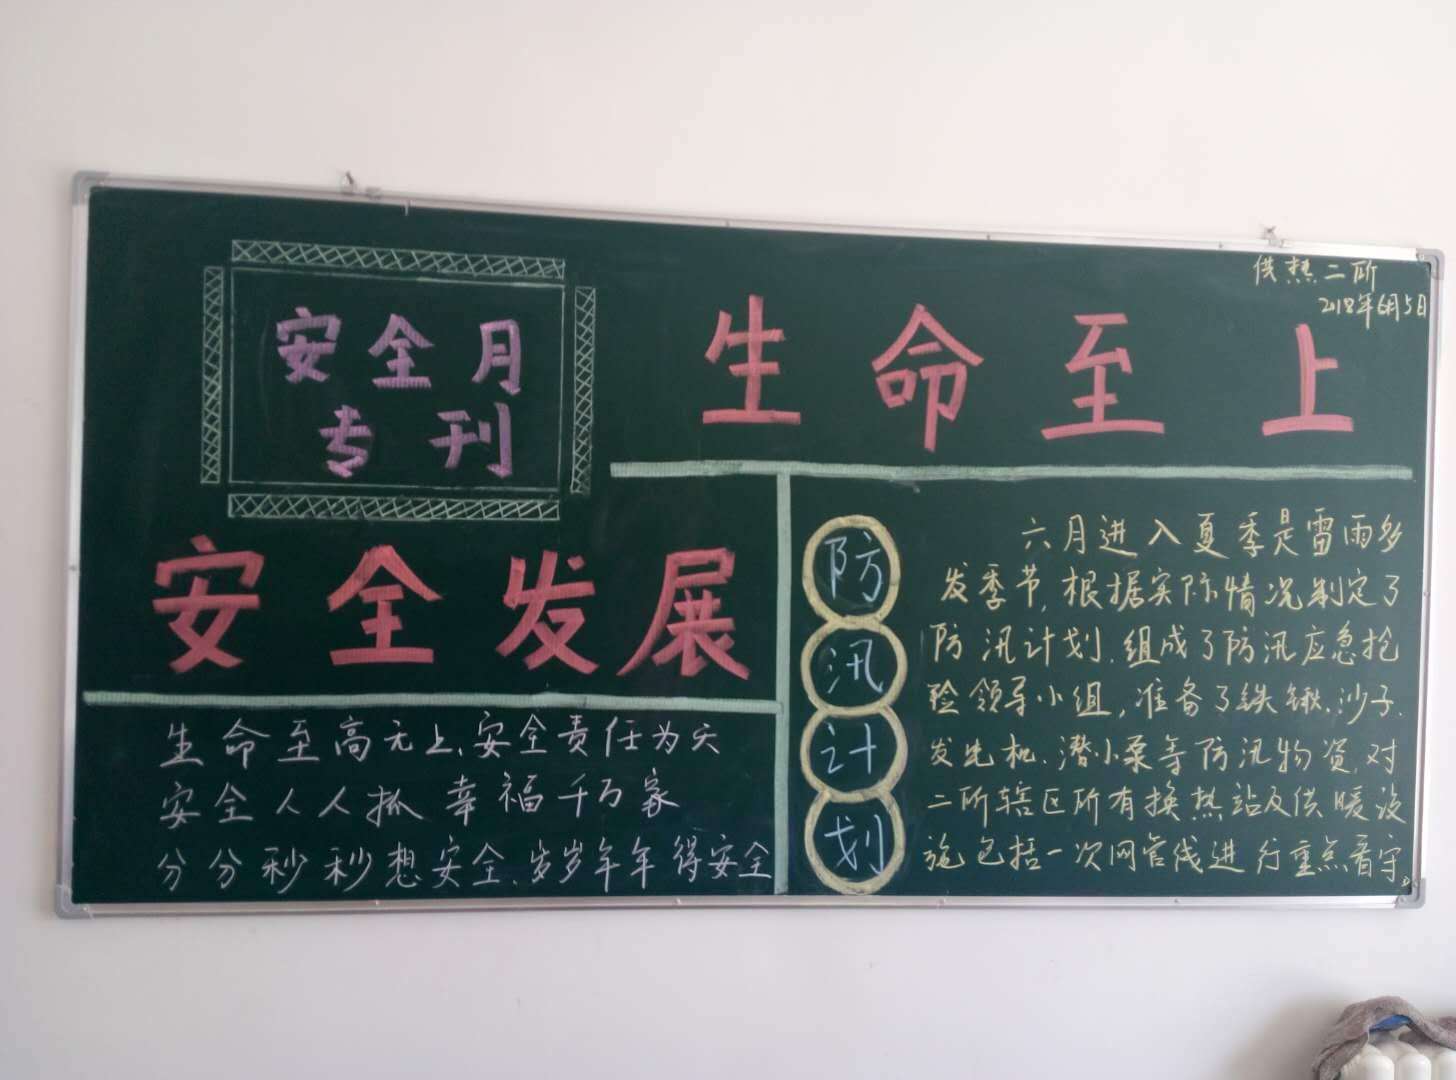 供热二所
2018年6月5日
安全月
专刊
生命至上
安全发展
生命至高无上、安全责任为天
安全人人抓 幸福千万家
分分秒秒想安全、岁岁年年得安全
防汛计划
六月进入夏季是雷雨多
发季节,根据实际情况制定了
防汛计划,组成了防汛应急抢
险领导小组,准备了铁锹、沙子、
发电机、潜水泵等防汛物资,对
二所辖区所有换热站及供暖设
施包括一次网管线进行重点看守。